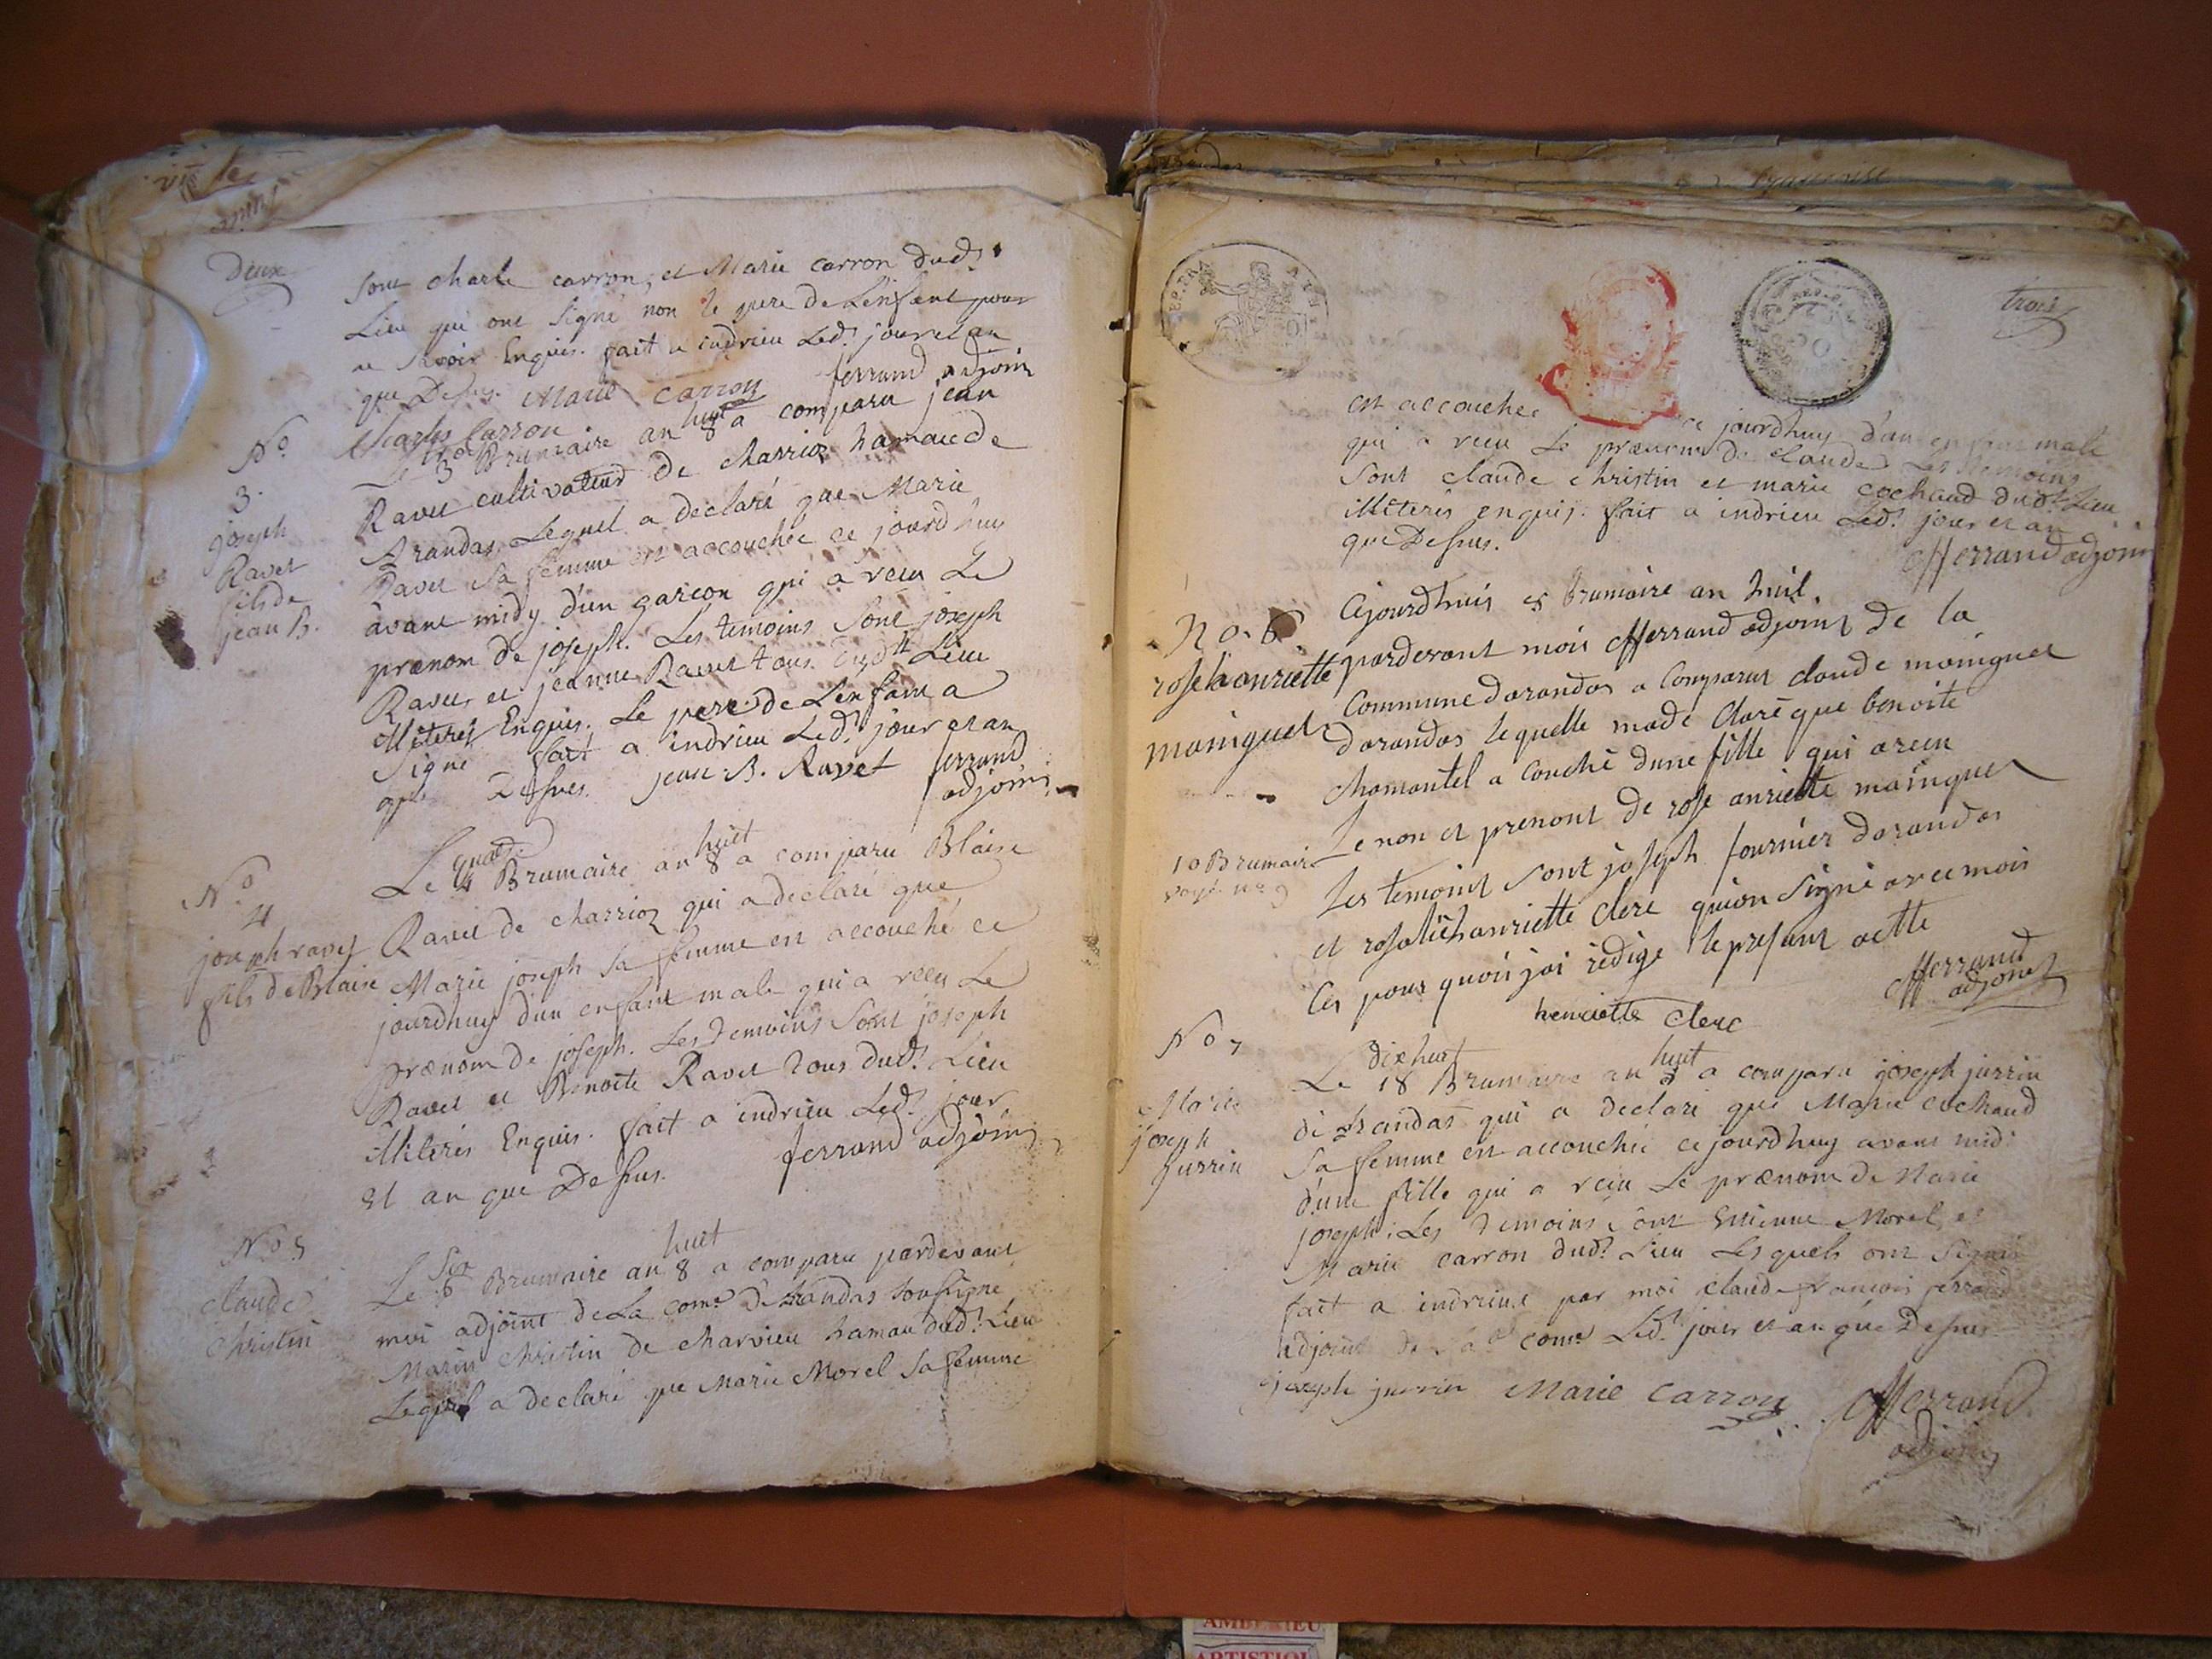 Deux
sont charle carron, et Marie carron dud.t
Lieu qui ont signé non le pere de L'enfant pour
ne savoir Enquis. fait a indrieu Led.t jour et an
que Dessus. Marie Carron ferrand adjoin
Charles Carron
N.o 3.
joseph
Ravet
fils de
jean B.
Le 3 Brumaire an huit 8 a comparu jean
Ravet cultivateur de charrioz hamau de
Arandas, Lequel a déclaré que Marie
Ravet sa femme est accouchée ce jourd'huy
avant midy d'un garcon qui a recu Le
prænom de joseph. Les temoins sont joseph
Ravet, et jeanne Ravet tous dud.t Lieu
illiterés Enquis. Le pere de L'enfant a
signé fait a indrieu Led.t jour et an
que Dessus. jean. B. Ravet ferrand
adjoint
N.o 4
joseph ravet
fils de Blaise
Le quat. 4 Brumaire an huit 8 a comparu Blaise
Ravet de charrioz qui a declaré que
Marie joseph sa femme est accouché ce
jourdhuy d'un enfant male qui a recu Le
prænom de joseph. Les temoins sont joseph
Ravet et Benoite Ravet tous dud.t Lieu
illiterés Enquis. fait a indrieu Led.t jour
et an que Dessus. ferrand adjoint
N.o 5
claude
christin
Le six 6 Brumaire an huit 8 a comparu pardevant
moi adjoint de La com.e d'Arandas soussigné
Marin christin de charvieu hamau dud.t Lieu
Lequel a declaré que Marie Morel sa femme
REP. FRA
trois
est accouchée ce jourdhuy d'un enfant male
qui a recu Le prænom de claude Les temoins
sont claude christin et marie cochaud dud.t Lieu
illiterés enquis. fait a indrieu Led.t jour et an
que Dessus. Cfferrand adjoin
No. 6
rose hanriette
mainguet
Cejourdhuis 8 brumaire an huit.
pardevant mois Cfferrand adjoint de la
Commune darandas a Comparut claude mainguet
darandas lequelle made Claré que benoite
chamantel a Couché dune fille qui a recu
Le non et prenont de rose anriette mainguet
10 Brumaire
voyé n.o 9
Les temoint sont joseph fournier darandas
et rosalie hanriette clerc quion Signé avec mois
Ces pour quoi jai redige le presant actte
henriette clerc Cfferrand
adjoint
No 7
Marie
joseph
jurrin
Le dix huit 18 Brumaire an huit 8 a comparu joseph jurrin
di Arandas qui a declaré que Marie cochaud
sa femme est accouchée ce jourdhuy avant midi
d'une fille qui a recu Le prænom de Marie
joseph. Les temoins sont Etienne Morel et
Marie carron dud.t Lieu Lesquels ont signé
fait a indrieux par moi claude francois ferrand
adjoint de La com.e Led.t jour et an que Dessus
joseph jurrin Marie Carron Cfferrand
adjoint
AMBERIEU